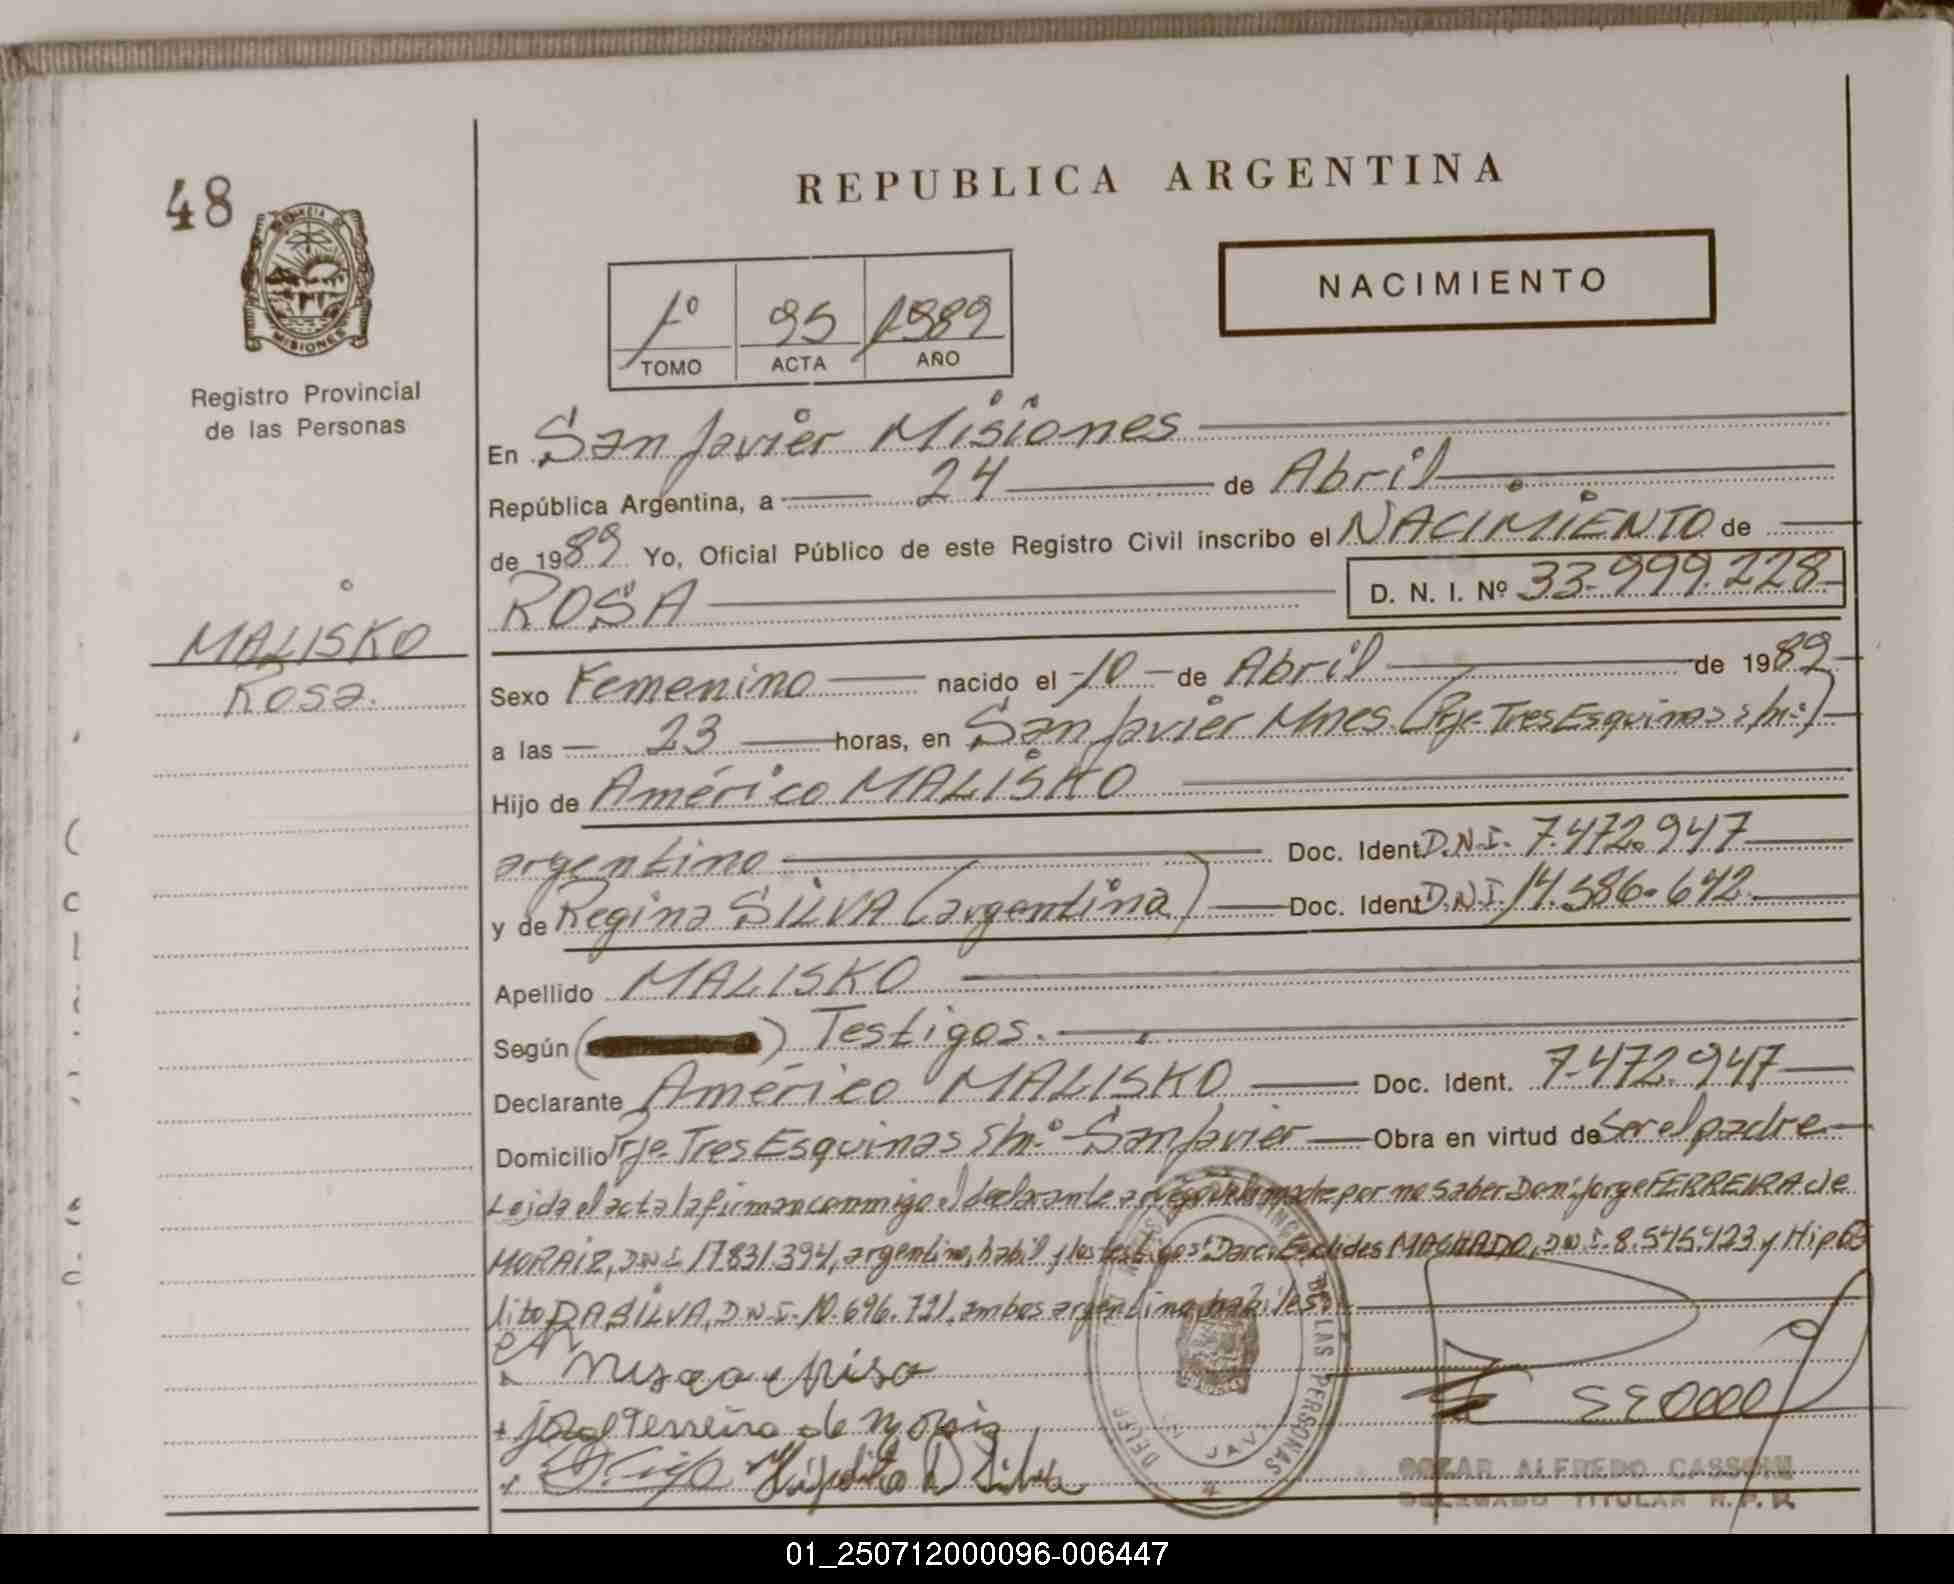 48
REPUBLICA ARGENTINA
PROVINCIA DE
MISIONES
Registro Provincial
de las Personas
1º 95 1989
TOMO ACTA AÑO
NACIMIENTO
En San Javier Misiones
República Argentina, a 24 de Abril
de 1989 Yo, Oficial Público de este Registro Civil inscribo el NACIMIENTO de
ROSA D. N. I. Nº 33.999.228
MALISKO
Rosa.
Sexo Femenino nacido el 10 de Abril de 1989
a las 23 horas, en San Javier Mnes. (Pje. Tres Esquinas s/nº)
Hijo de Américo MALISKO
argentino Doc. Ident. D.N.I. 7.472.947
y de Regina SILVA (argentina) Doc. Ident. D.N.I. 14.586.642
Apellido MALISKO
Según ( ) Testigos.
Declarante Américo MALISKO Doc. Ident. 7.472.947
Domicilio Pje. Tres Esquinas s/nº San Javier Obra en virtud de Ser el padre
Leida el acta la firman conmigo el declarante a ruego de la madre por no saber Don: Jorge FERREIRA de
MORAIZ, D.N.I. 17.831.394, argentino, habil y los testigos: Darci Euclides MACHADO, D.N.I. 8.545.423 y Hipó
lito DA SILVA, D.N.I. 10.696.721, ambos argentinos, habiles
Jorge Ferreira de Moraiz
Hipolito D Silva
DE LAS PERSONAS
OSCAR ALFREDO CASSONI
DELEGADO TITULAR R.P.P.
01_250712000096-006447